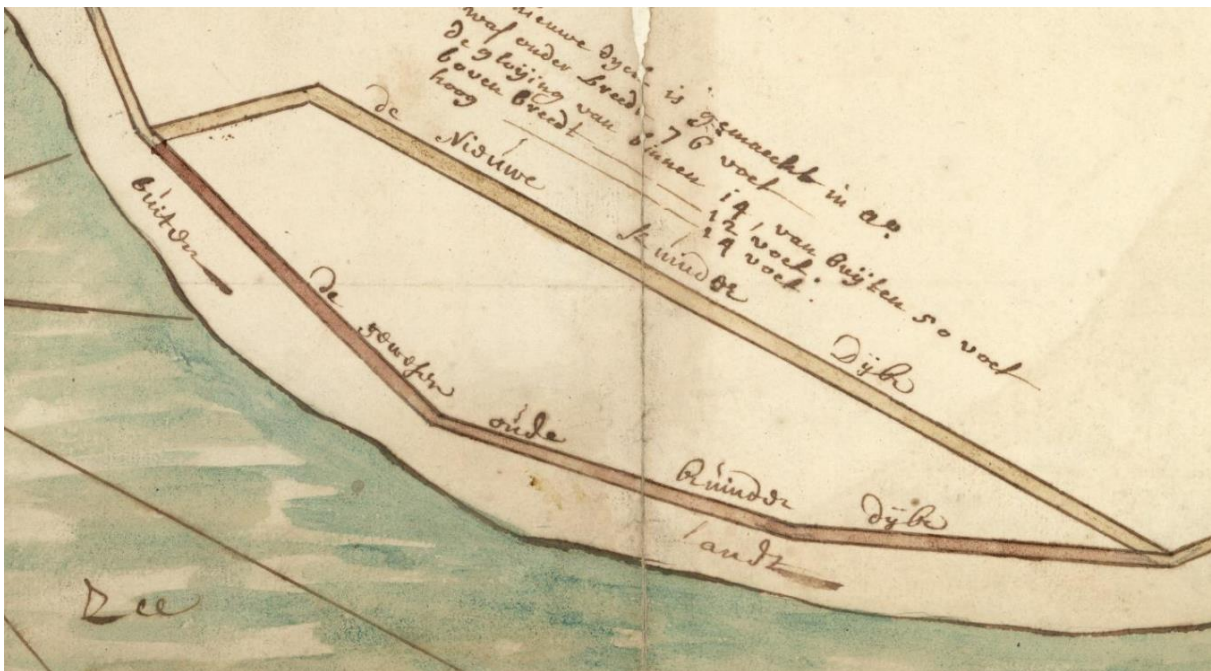 nieuwe dyck is gemaeckt in ao
was onder breedt 76 voet
de gloijing van binnen 14, van buijten 50 voet
boven breedt 12 voet.
hoog 14 voet.
de Nieuwe kuinder Dijk
de gewesen oude kuinder dijk
buiten landt
Zee